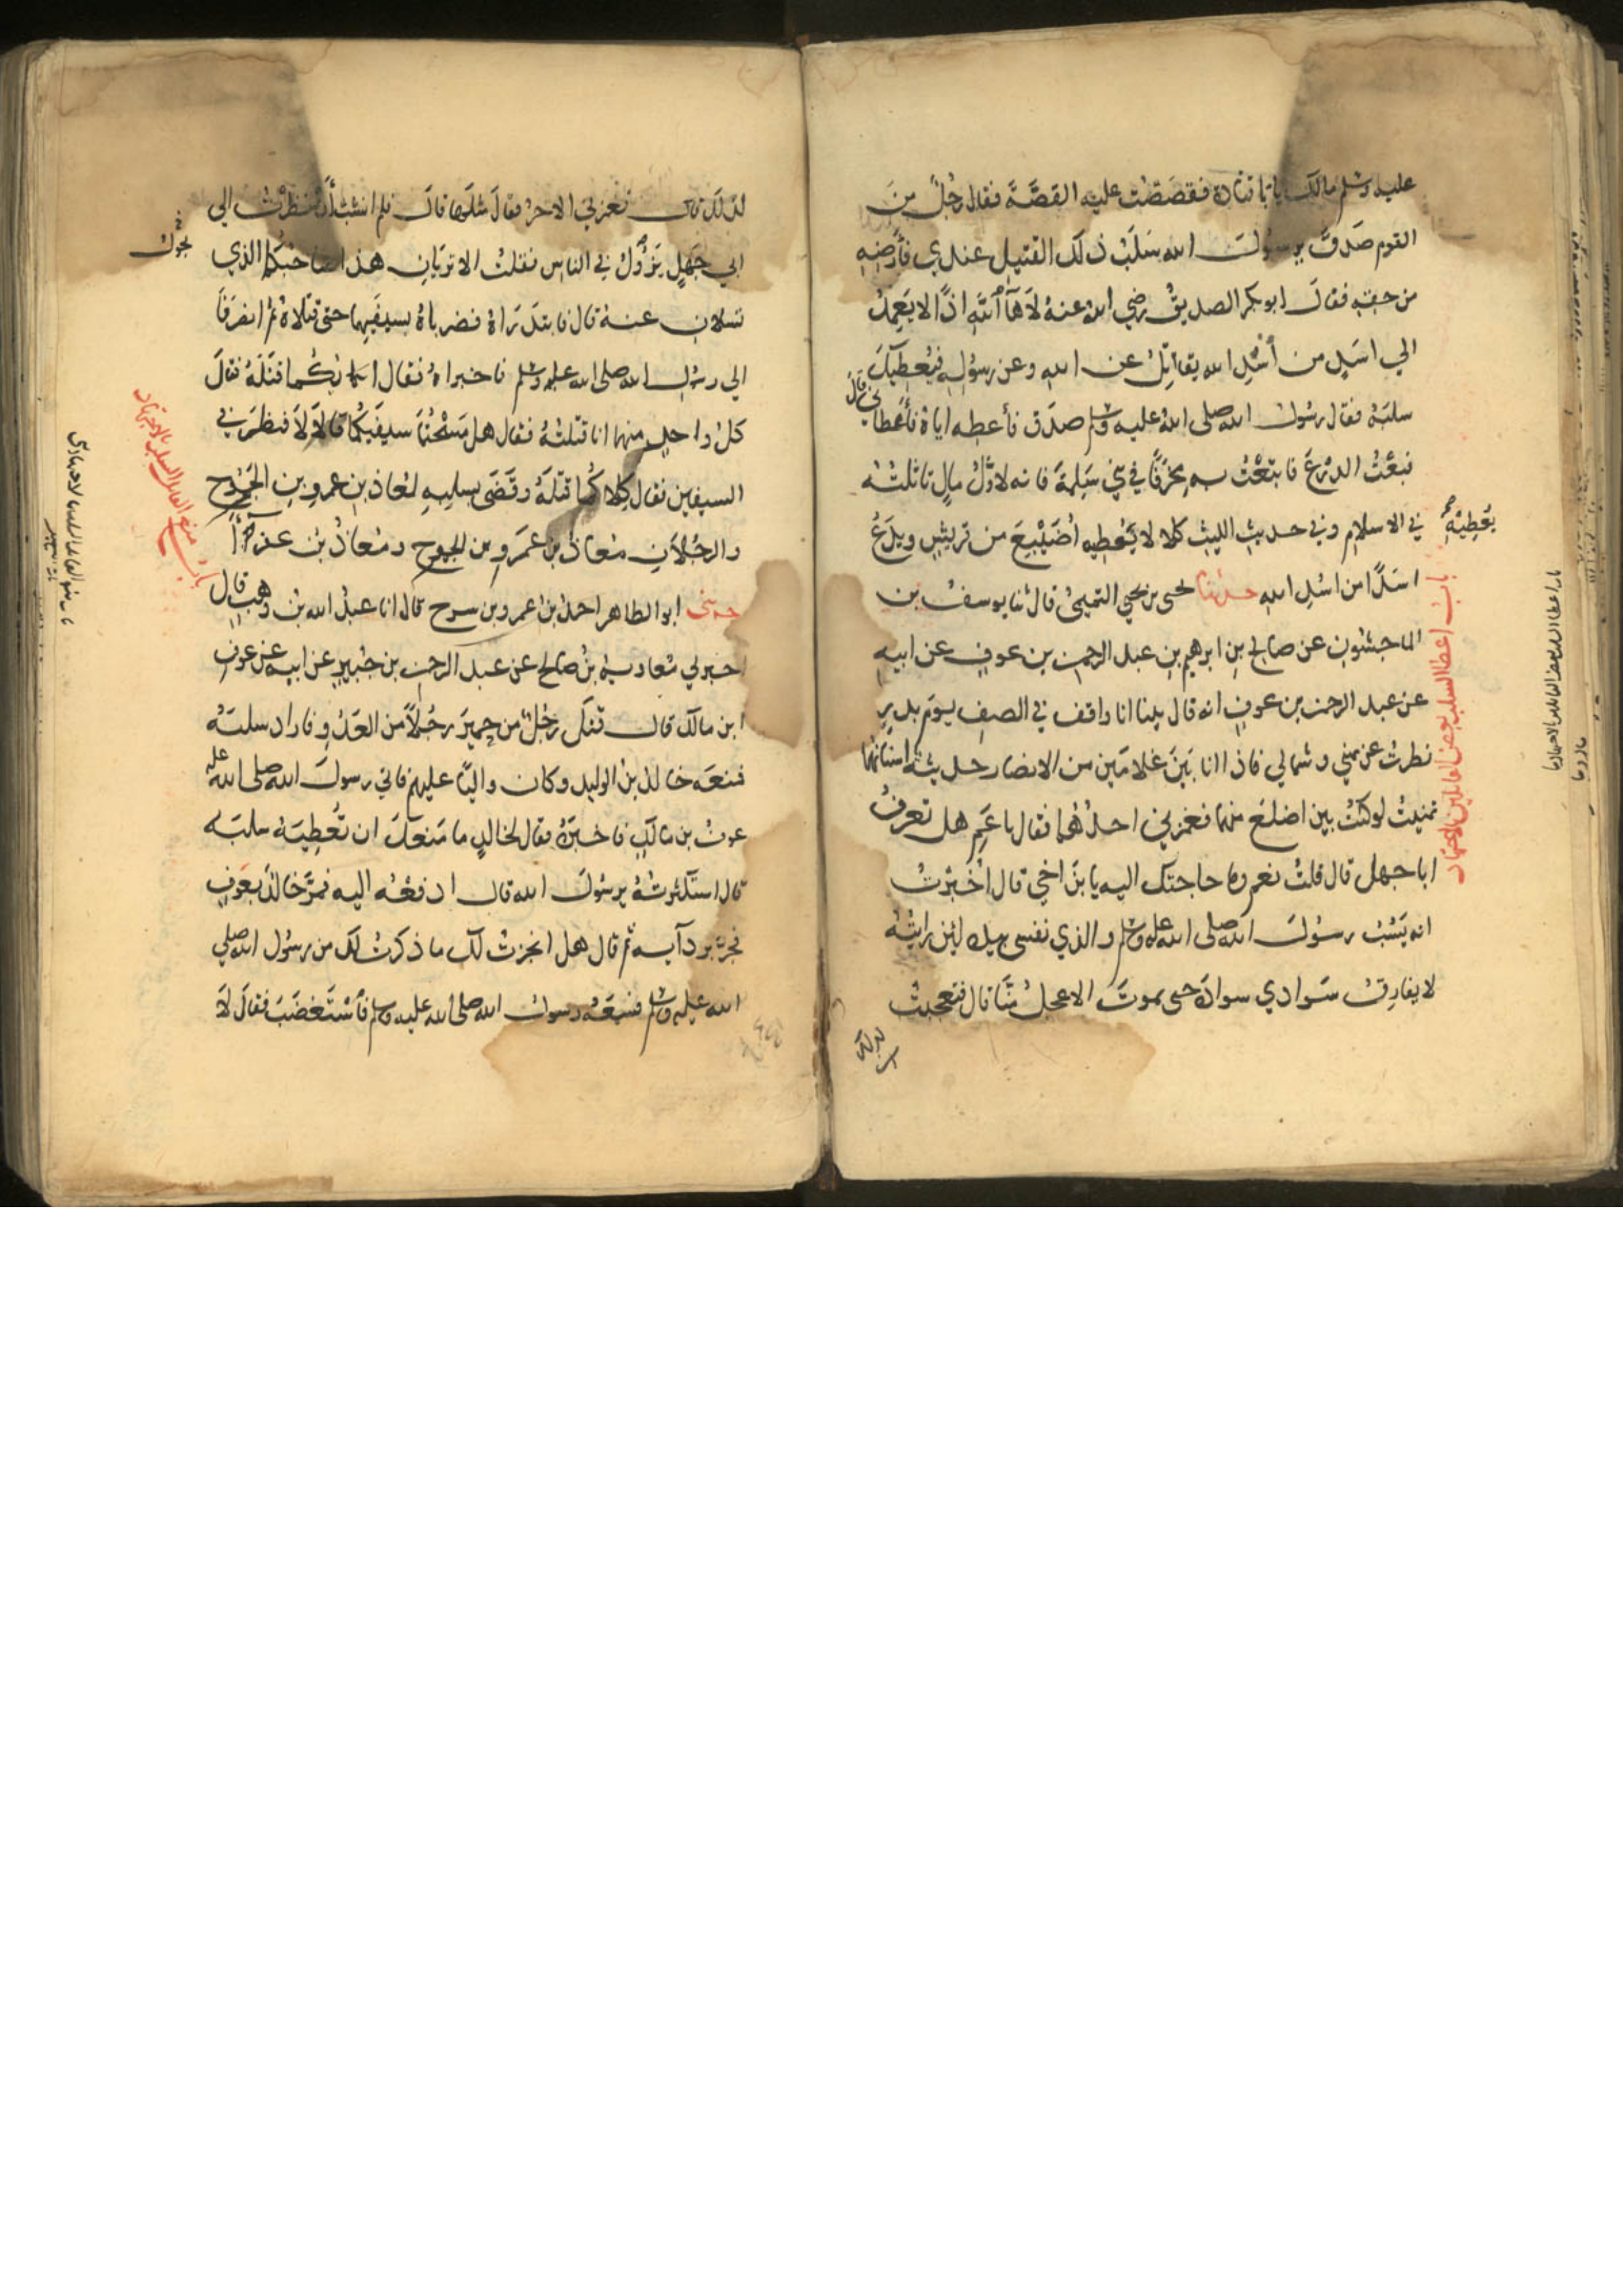 عليه وسلم مالك يابا قتادة فقصصت عليه القصَّة فقال رجُلٌ منَ
القوم صَدقَ يرسُولَ الله سَلَبُ ذلك القتيل عندي فأرضِهِ
من حقِّه فقالَ ابو بكر الصديقُ رضي اللهُ عنهُ لاهآ ٱللهِ اذًا لا يَعمِدُ
الي اسَدٍ من أُسْدِ الله يقاتِلُ عن اللهِ وعن رسُولِهِ فيُعطِيكَ
سلبَهُ فقال رسُولُ الله صلى اللهُ عليه وسلم صدَق فأعطِهِ اياهُ فأعطاني قالَ
فبعْتُ الدِّرْعَ فابتَعْتُ به مَخْرَفًا في بني سَلِمةَ فانه لاوَّلُ مالٍ تاثلتُهُ
في الاسلامِ وفي حديثِ الليثِ كلا لا يُعْطِيهِ أُضَيْبِعَ من قريشٍ ويَدَعُ
يُعطِيْهِ
اسَدًا من اسُدِ اللهِ حدثنا يحيى بن يحيي التميميُّ قال ثنا يوسفُ بن
الماجشُونِ عن صالحِ بنِ ابرهيم بنِ عبد الرحمن بن عوفٍ عن ابيهِ
عن عبد الرحمن بن عوفٍ انه قال بينا انا واقف في الصف يومَ بدرٍ
نظرتُ عن يميني وشمالي فاذا انا بَيْنَ غُلامَينِ من الانصار حديثةٍ اسنانُهُما
تمنيتُ لو كنتُ بين اضلعَ منهما فغمزني احدُهُما فقال ياعَمِّ هل تعرفُ
اباجهل قال قلتُ نعم وما حاجتك اليه يابنَ اخي قال أُخبِرْتُ
انه يَسُبُّ رسُولَ الله صلى الله عليه وسلم والذي نفسي بيده لئِن رايتُهُ
لا يفارِقُ سَوادي سوادَهُ حتى يموتَ الاعجلُ مِنَّا قال فتعجبتُ
لذلك
باب اعطا السلب بعض القاتلين بالاجتهاد
لذلك قال فغمزني الاخرُ فقالَ مثلَها قالَ فلم انشَبْ أَنْ نظرْتُ الي
ابي جَهلٍ يَزُولُ في الناسِ فقلتُ الا تريانِ هذا صاحبُكُما الذي
يجولُ
تسلانِ عنهُ قال فابتدَراهُ فضرباهُ بسيفَيهِما حتى قتلاهُ ثم انصرَفَا
الي رسُولِ الله صلى الله عليه وسلم فاخبراهُ فقال ايكُما قتلَهُ فقالَ
كلُّ واحدٍ منهما انا قتلتُهُ فقال هل مَسَحْتُمَا سيفَيكُما قالا لَا فنظرَ في
السيفين فقال كِلاكُما قتلَهُ وقَضَى بسلبِهِ لمُعاذِ بنِ عمرِو بنِ الجَمُوحِ
والرجُلانِ مُعاذُ بنُ عمَرو بن الجموح ومُعاذُ بنُ عفراءَ
حدثني ابو الطاهر احمدُ بنُ عمرو بن سرح قال انا عبدُ الله بنُ وهبٍ قال
اخبرني مُعاويةُ بنُ صالح عن عبد الرحمن بن جُبيرٍ عن ابيه عن عوفِ
ابن مالك قال قتلَ رجُلٌ من حِميرَ رجُلًا من العَدُوِ فارادَ سلبَهُ
فمنعَه خالدُ بنُ الوليد وكان واليًا عليهم فاتي رسولَ الله صلى الله عليه
عوفُ بن مالكٍ فاخبرَهُ فقال لخالدٍ ما منَعكَ ان تُعطِيَهُ سلبَه
قال استكثرتُهُ يرسُولَ الله قال ادفعْهُ اليه فمرَّ خالدٌ بعَوفٍ
فجرَّ بردآيه ثم قال هل انجزتُ لك ما ذكرتُ لك من رسُولِ الله صلي
الله عليه وسلم فسَمِعَهُ رسولُ الله صلى الله عليه وسلم فٱسْتُغضِبَ فقالَ لَا
باب منع القاتل السلب بالاجتهاد